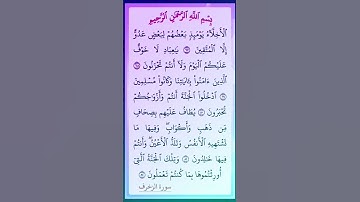 بِسْمِ ٱللَّهِ ٱلرَّحْمَٰنِ ٱلرَّحِيمِ
ٱلْأَخِلَّآءُ يَوْمَئِذٍۭ بَعْضُهُمْ لِبَعْضٍ عَدُوٌّ
إِلَّا ٱلْمُتَّقِينَ ۝ يَٰعِبَادِ لَا خَوْفٌ
عَلَيْكُمُ ٱلْيَوْمَ وَلَآ أَنتُمْ تَحْزَنُونَ ۝
ٱلَّذِينَ ءَامَنُوا۟ بِـَٔايَٰتِنَا وَكَانُوا۟ مُسْلِمِينَ
۝ ٱدْخُلُوا۟ ٱلْجَنَّةَ أَنتُمْ وَأَزْوَٰجُكُمْ
تُحْبَرُونَ ۝ يُطَافُ عَلَيْهِم بِصِحَافٍ
مِّن ذَهَبٍ وَأَكْوَابٍ ۖ وَفِيهَا مَا
تَشْتَهِيهِ ٱلْأَنفُسُ وَتَلَذُّ ٱلْأَعْيُنُ ۖ وَأَنتُمْ
فِيهَا خَٰلِدُونَ ۝ وَتِلْكَ ٱلْجَنَّةُ ٱلَّتِىٓ
أُورِثْتُمُوهَا بِمَا كُنتُمْ تَعْمَلُونَ ۝
سورة الزخرف